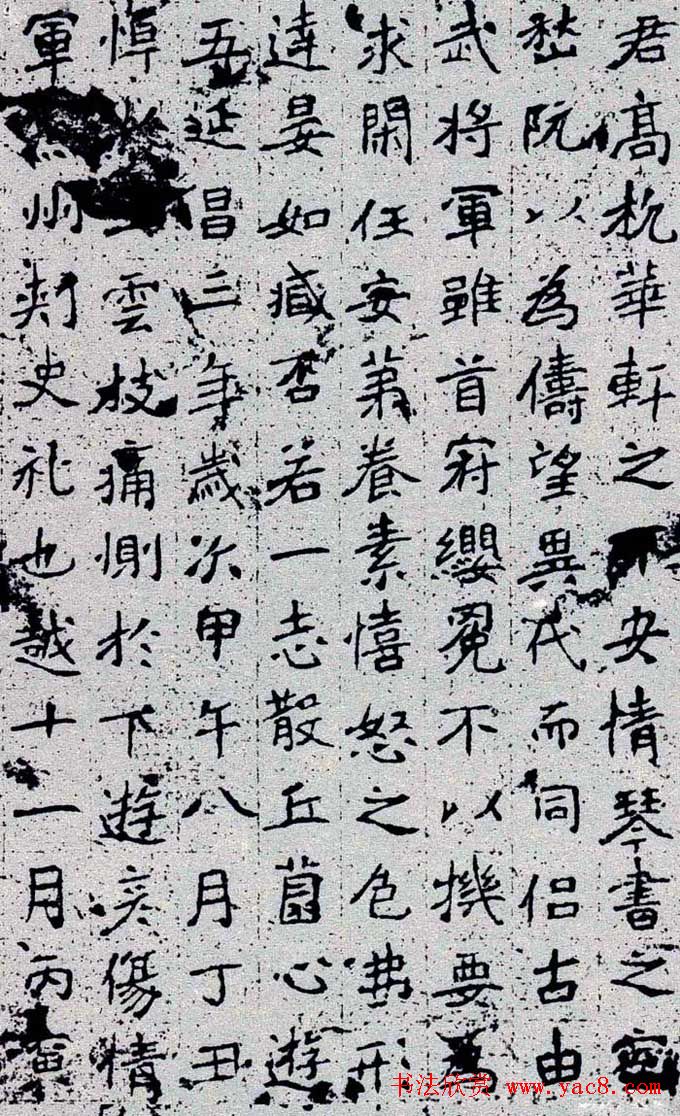 君高枕華軒之安情琴書之室
嵇阮以為儔望異代而同侶古由
武将軍雖首冠纓冕不以機要為
求閑任安苐養素憘怒之色弗形
達晏如臧否若一志散丘菌心遊
吾延昌三年歲次甲午八月丁丑
悼雲枝痛惻於下遊哀傷情
軍州刾史礼也越十一月丙
书法欣赏 www.yac8.com